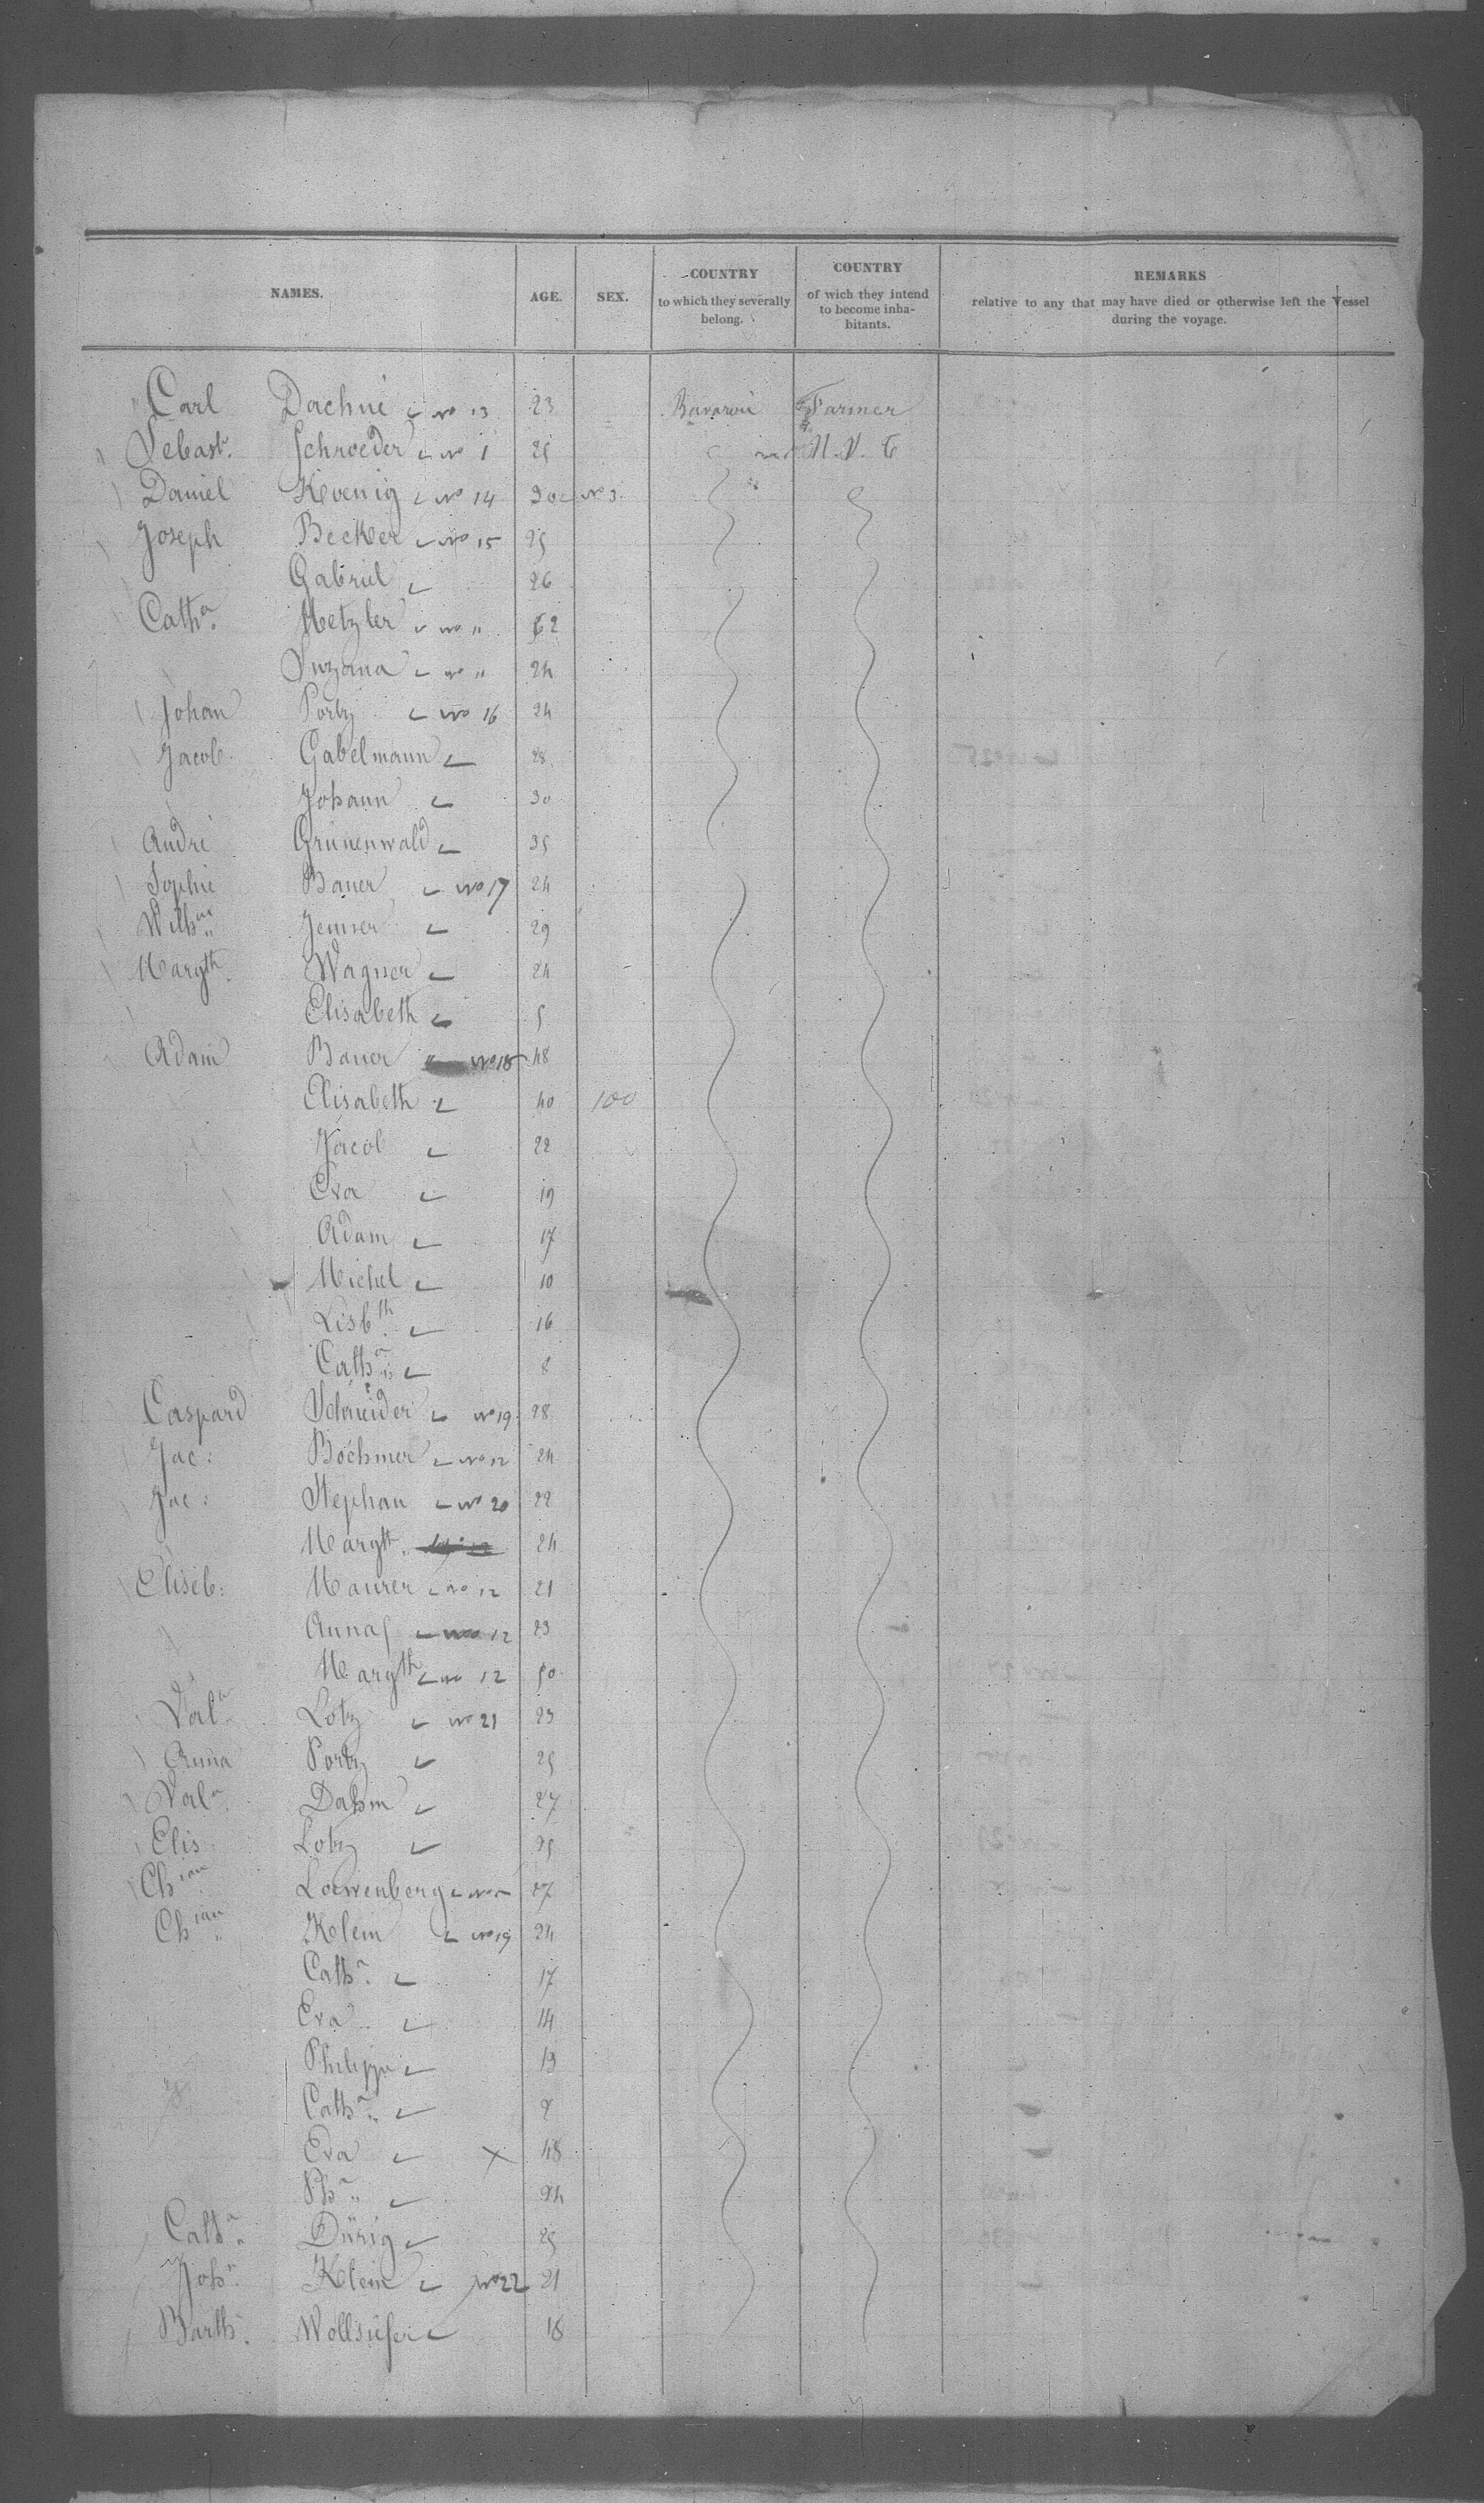 NAMES. AGE. SEX. COUNTRY to which they severally belong. COUNTRY of wich they intend to become inhabitants. REMARKS relative to any that may have died or otherwise left the Vessel during the voyage.
Carl Dachné No 13 23 Bavaroie Farmer
Sebastn. Schroeder No 1 25 and U. V. C
Daniel Koenig No 14 30 No 3
Joseph Becker No 15 25
Gabriel 26
Catha. Metzler No " 62
Suzana No " 24
Johan Portz No 16 24
Jacob Gabelmann 28
Johann 30
André Grünenwald 35
Sophie Bauer No 17 24
Wilhm Jenner 29
Margth. Wagner 24
Elisabeth 5
Adam Bauer No 18 48
Elisabeth 40 100
Jacob 22
Eva 19
Adam 17
Michel 10
Lisbth. 16
Catha. 8
Caspard Schneider No 19 28
Jac: Boehmer No 12 24
Jac: Stephan No 20 22
Margth. 24
Eliseb: Maurer No 12 21
Anna No 12 23
Margth No 12 50
Valn Lotz No 21 23
Anna Portz 25
Valn. Dahm 27
Elis Lotz 25
Chian Loewenberg 27
Chian Klein No 19 24
Catha. 17
Eva 14
Philippe 13
Catha. 9
Eva X 48
Phn 24
Catha. Dürig 25
Johs. Klein No 22 21
Barth. Wollsiefer 18